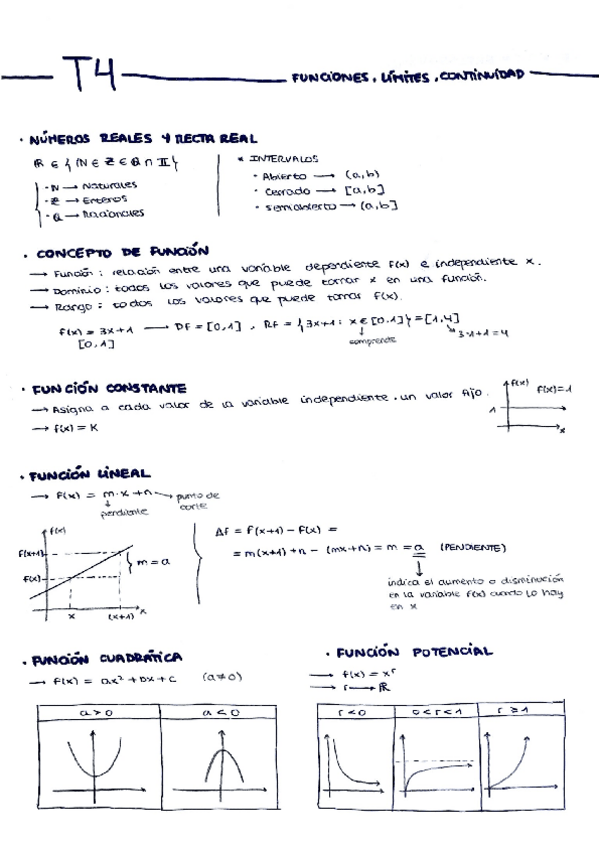 T4
FUNCIONES, LÍMITES, CONTINUIDAD
· NÚMEROS REALES Y RECTA REAL
ℝ ∈ { ℕ ∈ ℤ ∈ ℚ ∩ 𝕀 }
· N → Naturales
· Z → Enteros
· Q → Racionales
* INTERVALOS
· Abierto → (a,b)
· Cerrado → [a,b]
· Semiabierto → (a,b]
· CONCEPTO DE FUNCIÓN
→ Función : relación entre una variable dependiente f(x) e independiente x.
→ Dominio : todos los valores que puede tomar x en una función.
→ Rango : todos los valores que puede tomar f(x).
f(x) = 3x+1 → Df = [0,1] , Rf = {3x+1 : x ∈ [0.1]} = [1,4]
[0,1]
comprende
3·1+1=4
· FUNCIÓN CONSTANTE
→ Asigna a cada valor de la variable independiente, un valor fijo.
→ f(x) = K
f(x)
f(x)=1
1
x
· FUNCIÓN LINEAL
→ f(x) = m·x+n → punto de corte
pendiente
f(x)
f(x+1)
f(x)
m = a
x
(x+1)
x
Δf = f(x+1) - f(x) =
= m(x+1) + n - (mx+n) = m = a (PENDIENTE)
indica el aumento o disminución
en la variable f(x) cuando lo hay
en x
· FUNCIÓN CUADRÁTICA
→ f(x) = ax² + bx + c (a≠0)
a > 0
a < 0
· FUNCIÓN POTENCIAL
→ f(x) = xʳ
→ r → ℝ
r < 0
0 < r < 1
r ≥ 1